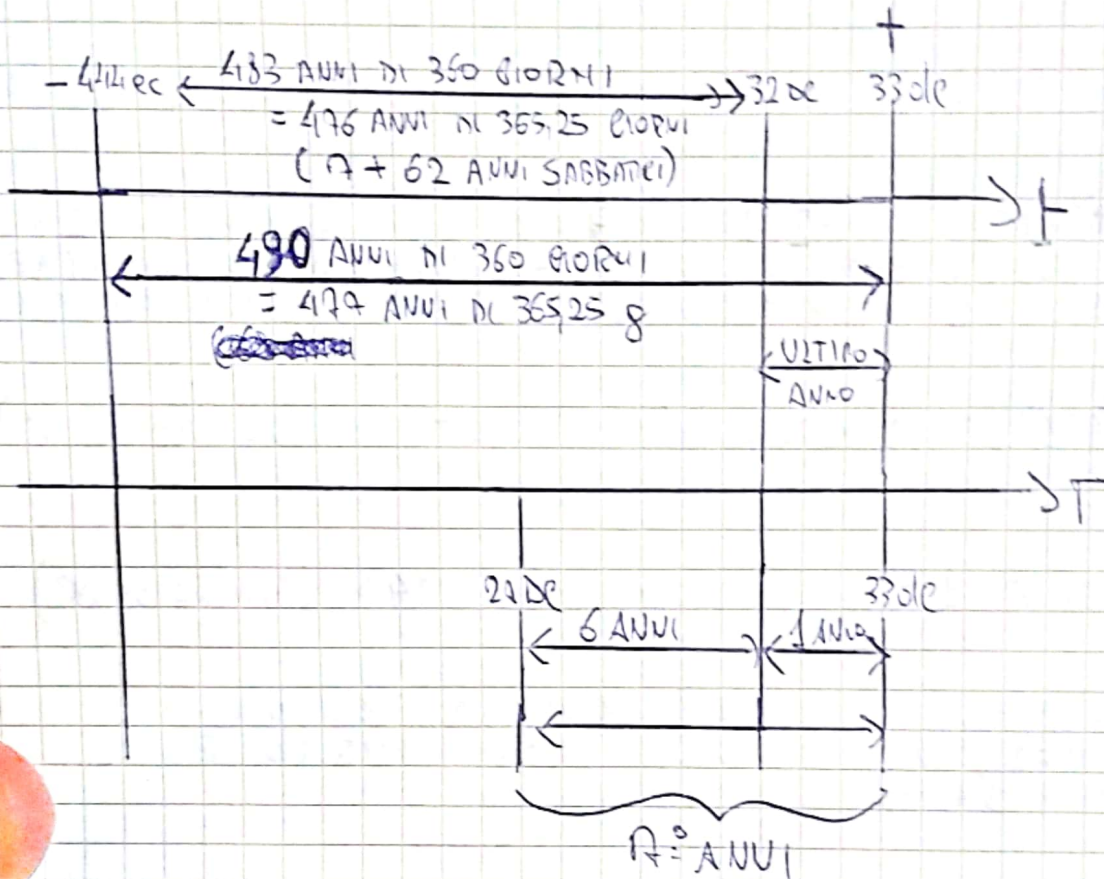 +
- 444 ec 483 ANNI DI 360 GIORNI 32 dc 33 dc
= 476 ANNI DI 365,25 GIORNI
(7 + 62 ANNI SABBATICI)
t
490 ANNI DI 360 GIORNI
= 477 ANNI DI 365,25 g
ULTIMO
ANNO
T
27 DC 33 dC
6 ANNI 1 ANNO
7 ANNI